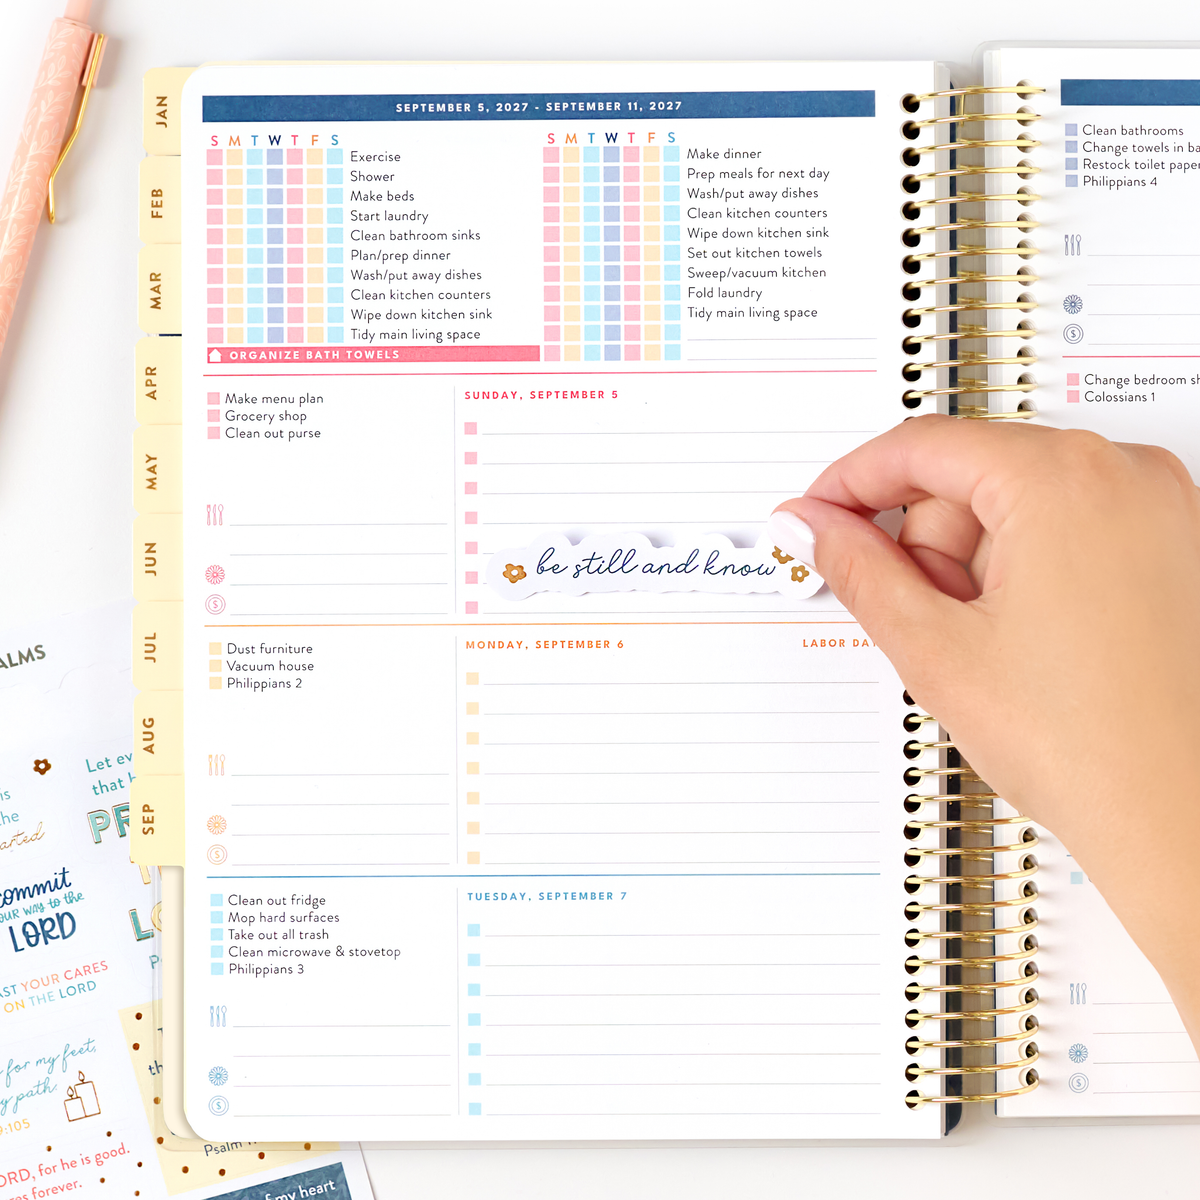 JAN
FEB
MAR
APR
MAY
JUN
JUL
AUG
SEP
SEPTEMBER 5, 2027 - SEPTEMBER 11, 2027
S M T W T F S
Exercise
Shower
Make beds
Start laundry
Clean bathroom sinks
Plan/prep dinner
Wash/put away dishes
Clean kitchen counters
Wipe down kitchen sink
Tidy main living space
ORGANIZE BATH TOWELS
S M T W T F S
Make dinner
Prep meals for next day
Wash/put away dishes
Clean kitchen counters
Wipe down kitchen sink
Set out kitchen towels
Sweep/vacuum kitchen
Fold laundry
Tidy main living space
Make menu plan
Grocery shop
Clean out purse
SUNDAY, SEPTEMBER 5
be still and know
Dust furniture
Vacuum house
Philippians 2
MONDAY, SEPTEMBER 6
LABOR DAY
Clean out fridge
Mop hard surfaces
Take out all trash
Clean microwave & stovetop
Philippians 3
TUESDAY, SEPTEMBER 7
Clean bathrooms
Change towels in
Restock toilet paper
Philippians 4
Change bedroom
Colossians 1
Let
that
commit
YOUR WAY to the
LORD
YOUR CARES
ON THE LORD
for my feet,
path.
:105
for he is good.
forever.
Psalm
my heart